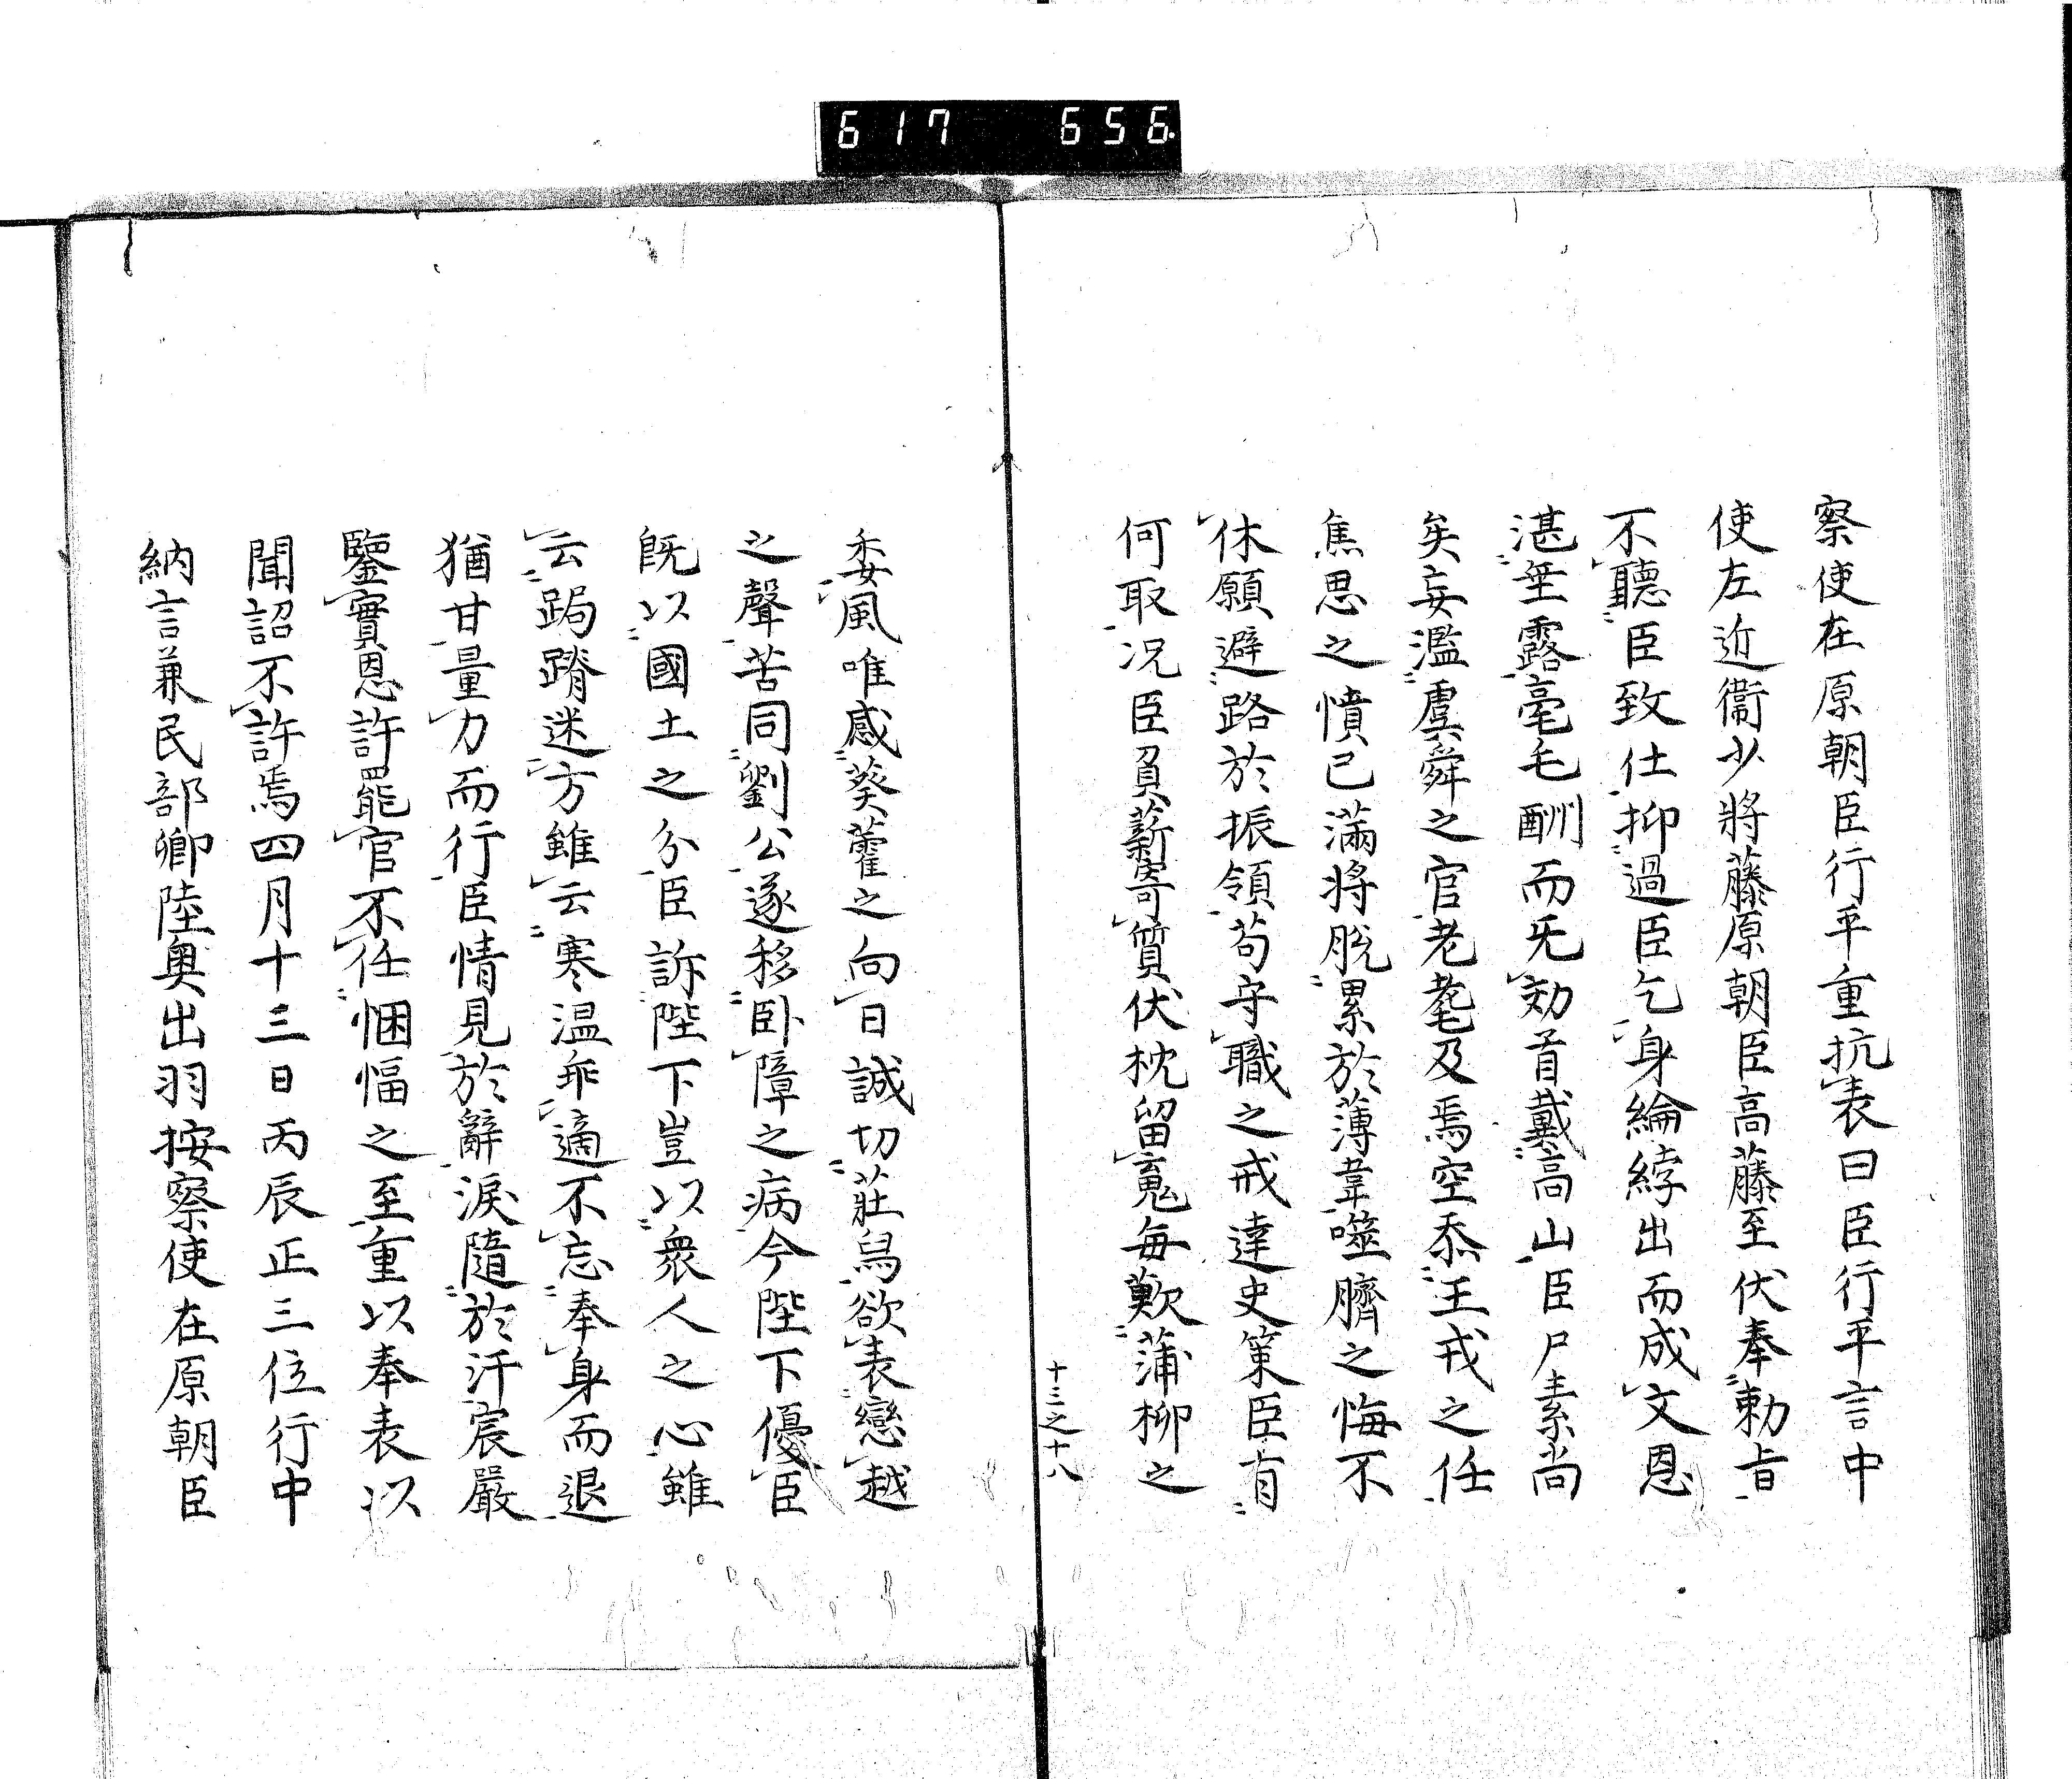 617 656
察使在原朝臣行平重抗表曰臣行平言中
使左近衞少將藤原朝臣高藤至伏奉勅旨
不聽臣致仕抑過臣乞身綸綍出而成文恩
湛垂露毫毛酬而无効首戴高山臣尸素尚
矣妄濫虞舜之官老耄及焉空忝王戎之任
焦思之憤已滿將脫累於薄韋噬臍之悔不
休願避路於振領苟守職之戒達史策臣有
何取况臣負薪寄質伏枕留䰟每歎蒲柳之
十三之十八
委風唯感葵藿之向日誠切莊舄欲表戀越
之聲苦同劉公遂移卧障之病今陛下優臣
旣以國土之分臣訴陛下豈以衆人之心雖
云跼蹐迷方雖云寒温乖適不忘奉身而退
猶甘量力而行臣情見於辭淚隨於汗宸嚴
鑒實恩許罷官不任悃愊之至重以奉表以
聞詔不許焉四月十三日丙辰正三位行中
納言兼民部卿陸奥出羽按察使在原朝臣